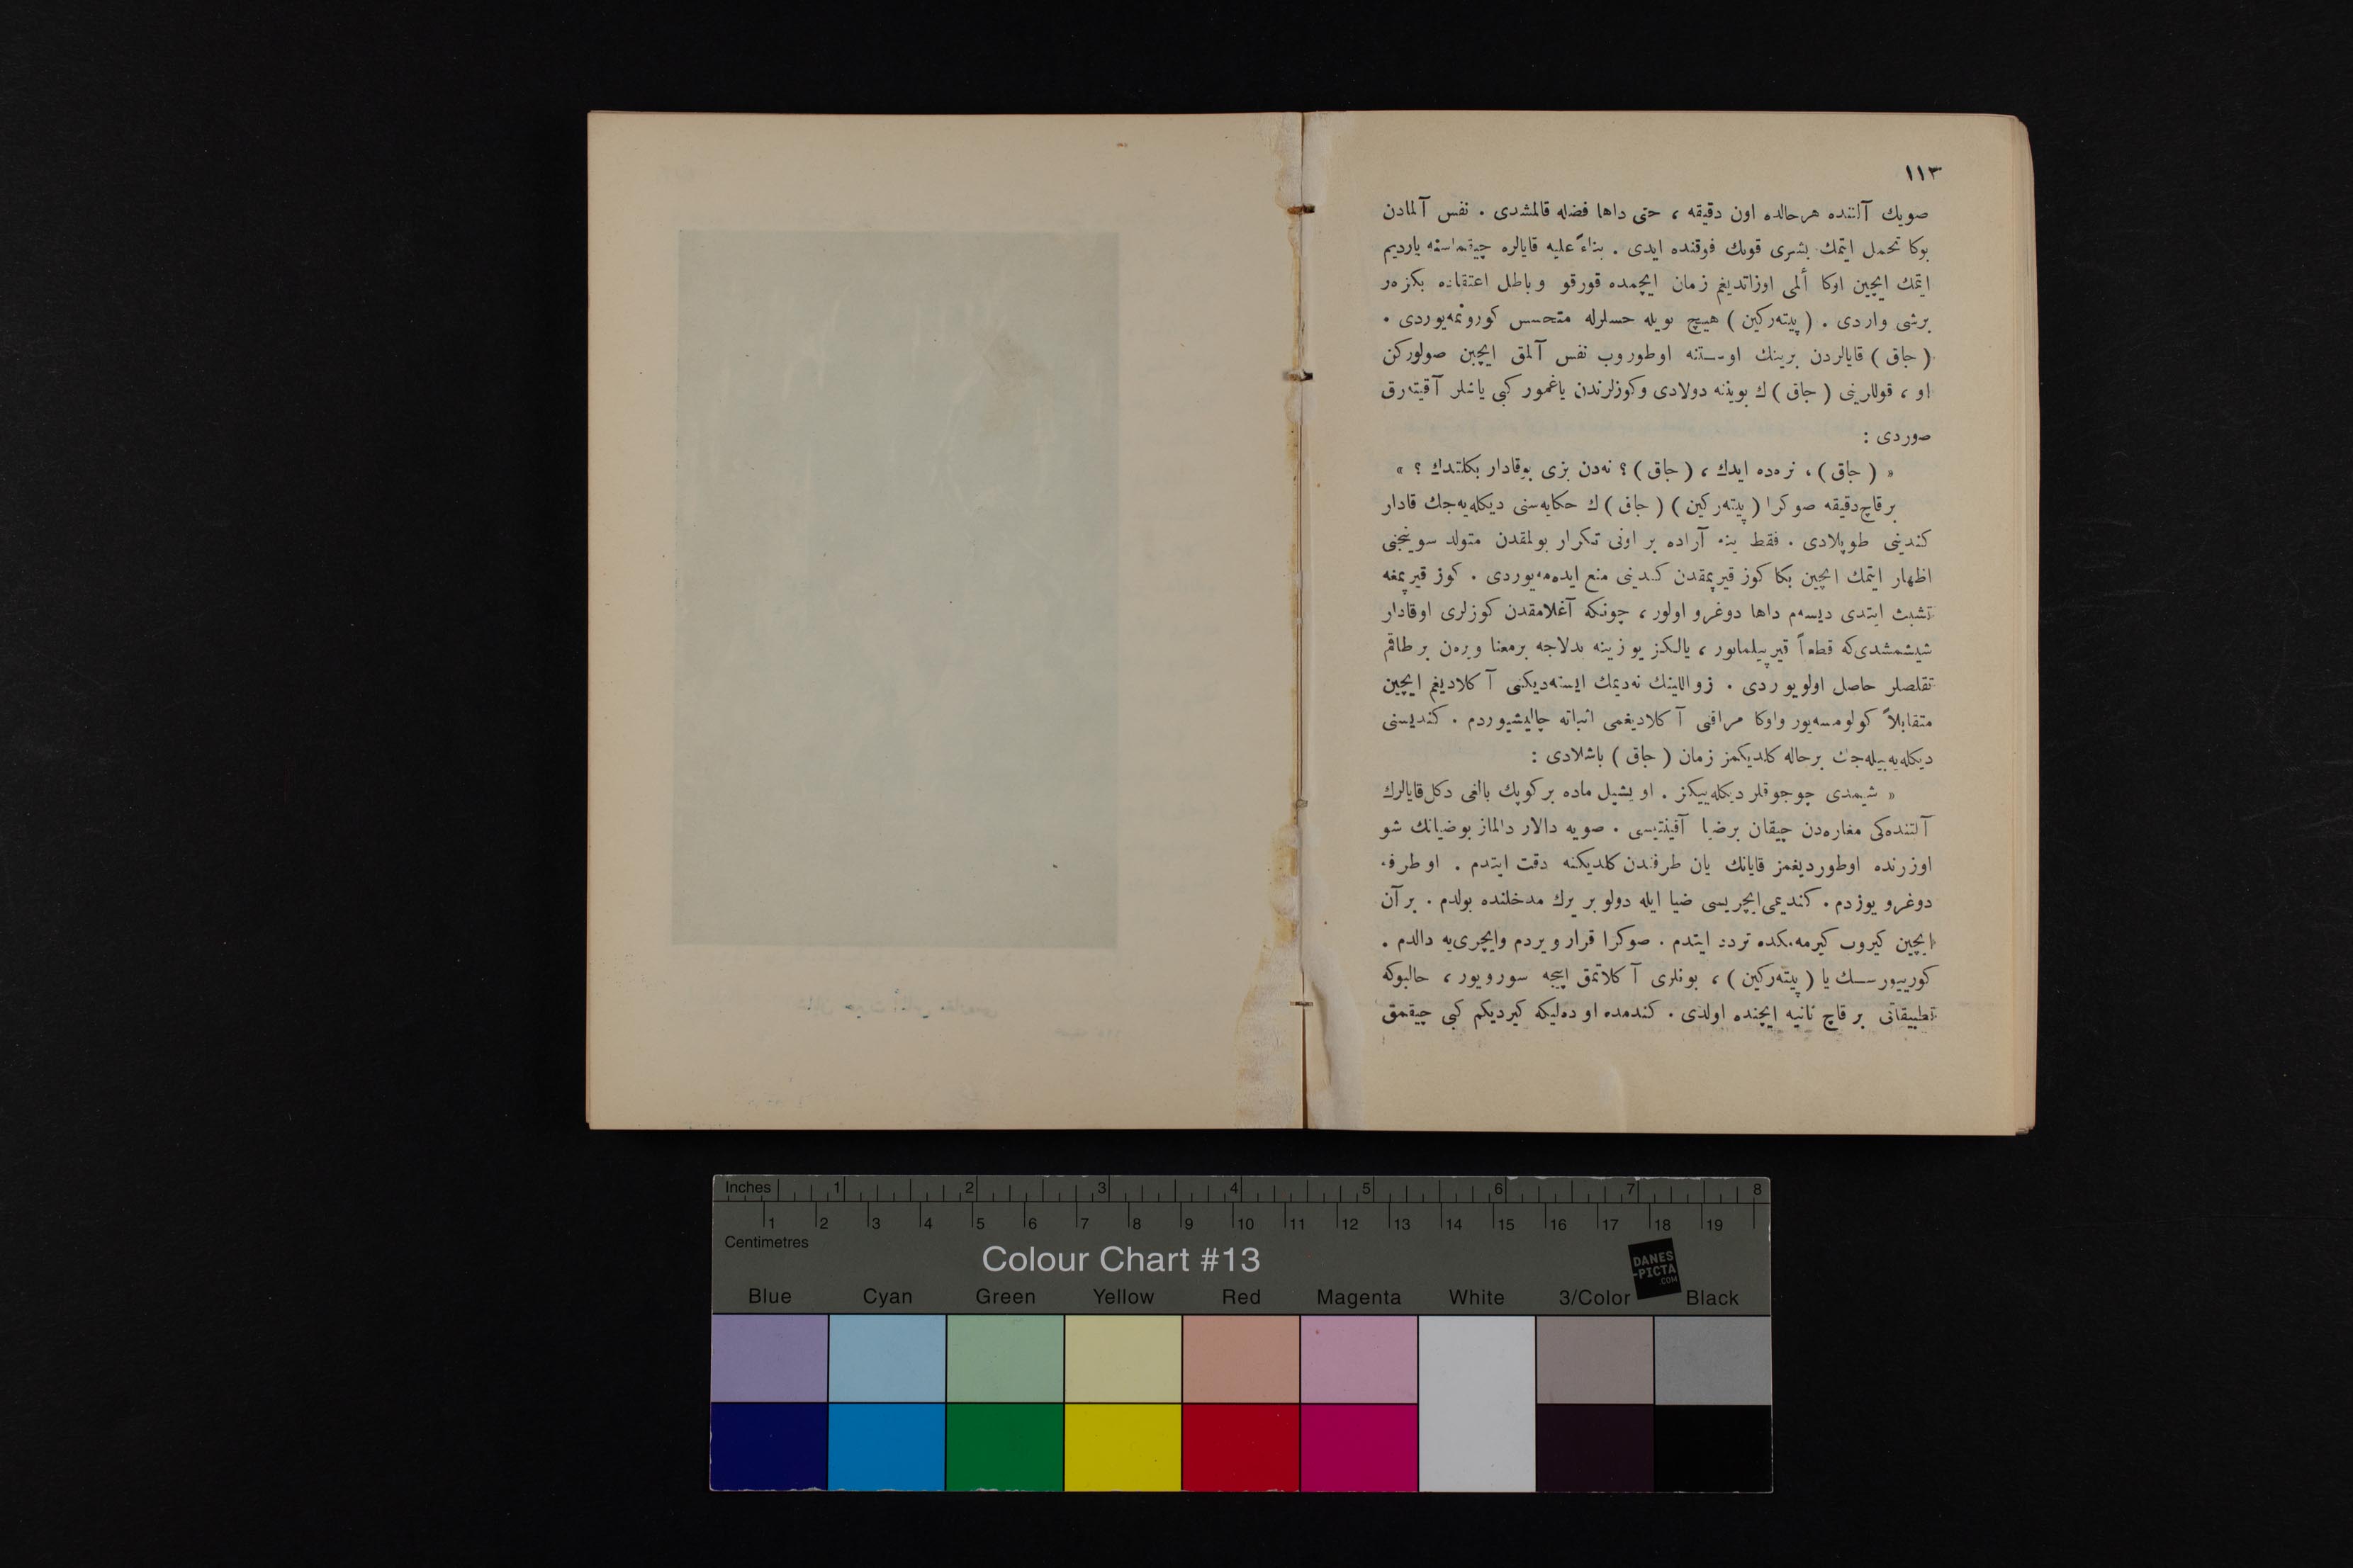 ١١٣
صويك آلتنده هرحالده اون دقيقه ، حتى داها فضله قالمشدى . نفس آلمادن
بوكا تحمل ايتمك بشرى قوتك فوقنده ايدى . بناءً عليه قايالره چيقماسنه يارديم
ايتمك ايچين اوكا ألمى اوزاتديغم زمان ايچمده قورقو وباطل اعتقاده بكزەر
برشى واردى . ( پيتەركين ) هيچ بويله حسلرله متحسس كورونمەيوردى .
( جاق ) قايالردن برينك اوستنه اوطوروب نفس آلمق ايچين صولوركن
او ، قوللرينى ( جاق ) ك بويننه دولادى وكوزلرندن ياغمور كبى ياشلر آقيتەرق
صوردى :
« ( جاق ) ، نرەده ايدك ، ( جاق ) ؟ نەدن بزى بوقادار بكلتدك ؟ »
برقاچ دقيقه صوكرا ( پيتەركين ) ( جاق ) ك حكايەسنى ديكلەيەجك قادار
كندينى طوپلادى . فقط ينه آراده بر اونى تكرار بولمقدن متولد سوينجنى
اظهار ايتمك ايچين بكا كوز قيرپمقدن كندينى منع ايدەمەيوردى . كوز قيرپمغه
تشبث ايتدى ديسەم داها دوغرو اولور ، چونكه آغلامقدن كوزلرى اوقادار
شيشمشدى كه قطعاً قيرپيلمايور ، يالكز يوزينه بدلاجه برمعنا ويرەن بر طاقم
تقلصلر حاصل اولويوردى . زواللينك نەديمك ايستەديكنى آكلاديغم ايچين
متقابلاً كولومسەيور واوكا مرامنى آكلاديغمى اثباته چاليشيوردم . كنديسنى
ديكلەيەبيلەجك برحاله كلديكمز زمان ( جاق ) باشلادى :
« شيمدى چوجوقلر ديكلەييكز . او يشيل ماده بر كوپك بالغى دكل قايالرك
آلتندەكى مغارەدن چيقان برضيا آقينتيسى . صويه دالار دالماز بوضيانك شو
اوزرنده اوطورديغمز قايانك يان طرفندن كلديكنه دقت ايتدم . او طرفه
دوغرو يوزدم . كنديمى ايچريسى ضيا ايله دولو بر يرك مدخلنده بولدم . بر آن
ايچين كيروب كيرمەمكده تردد ايتدم . صوكرا قرار ويردم وايچرىيه دالدم .
كورييورسك يا ( پيتەركين ) ، بونلرى آكلاتمق اپيجه سورويور ، حالبوكه
تطبيقاتى بر قاچ ثانيه ايچنده اولدى . كندمده او دەليكه كيرديكم كبى چيقمق
Inches 1 2 3 4 5 6 7 8
1 2 3 4 5 6 7 8 9 10 11 12 13 14 15 16 17 18 19
Centimetres
Colour Chart #13
DANES
-PICTA
.COM
Blue Cyan Green Yellow Red Magenta White 3/Color Black